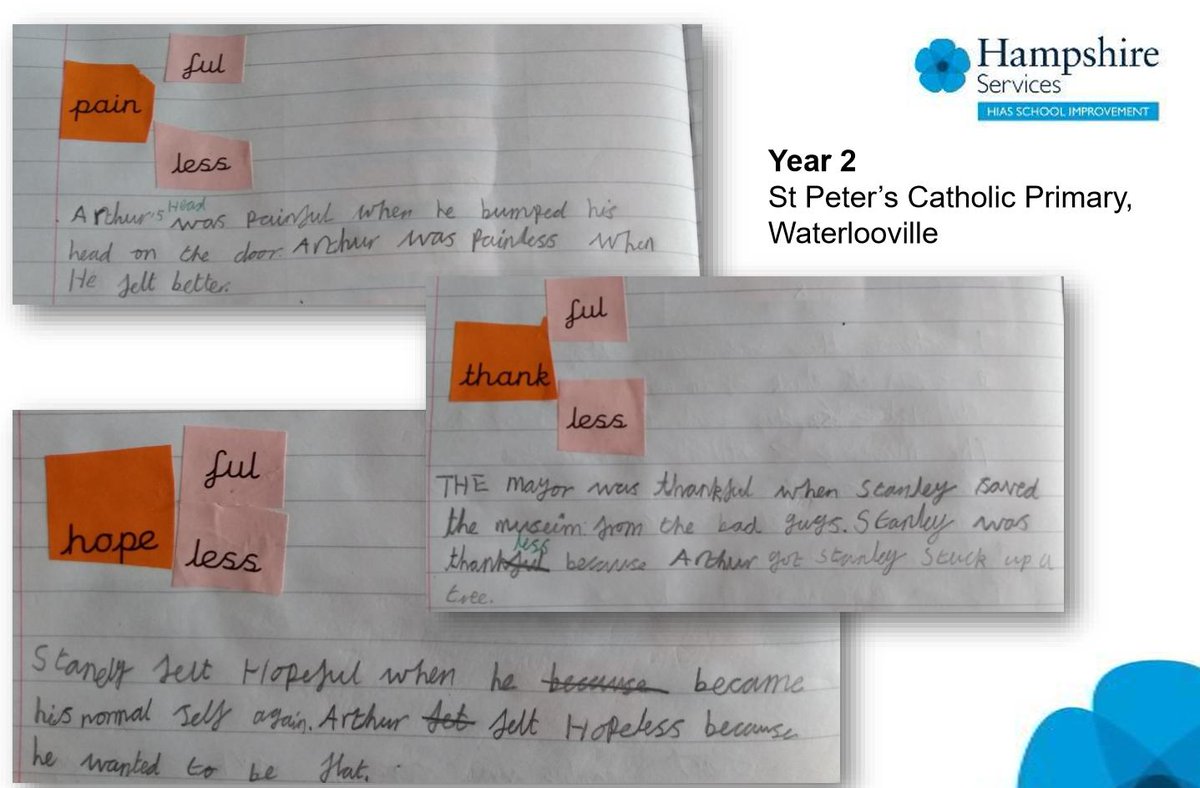 ful
pain
less
Arthur's Head was painful when he bumped his
head on the door. Arthur was painless when
He felt better.
Hampshire
Services
HIAS SCHOOL IMPROVEMENT
Year 2
St Peter's Catholic Primary,
Waterlooville
ful
thank
less
THE mayor was thankful when Stanley saved
the museim from the bad guys. Stanley was
less
thankful because Arthur got Stanley stuck up a
tree.
ful
hope
less
Stanely felt Hopeful when he because became
his normal self again. Arthur fet felt Hopeless because
he wanted to be flat.